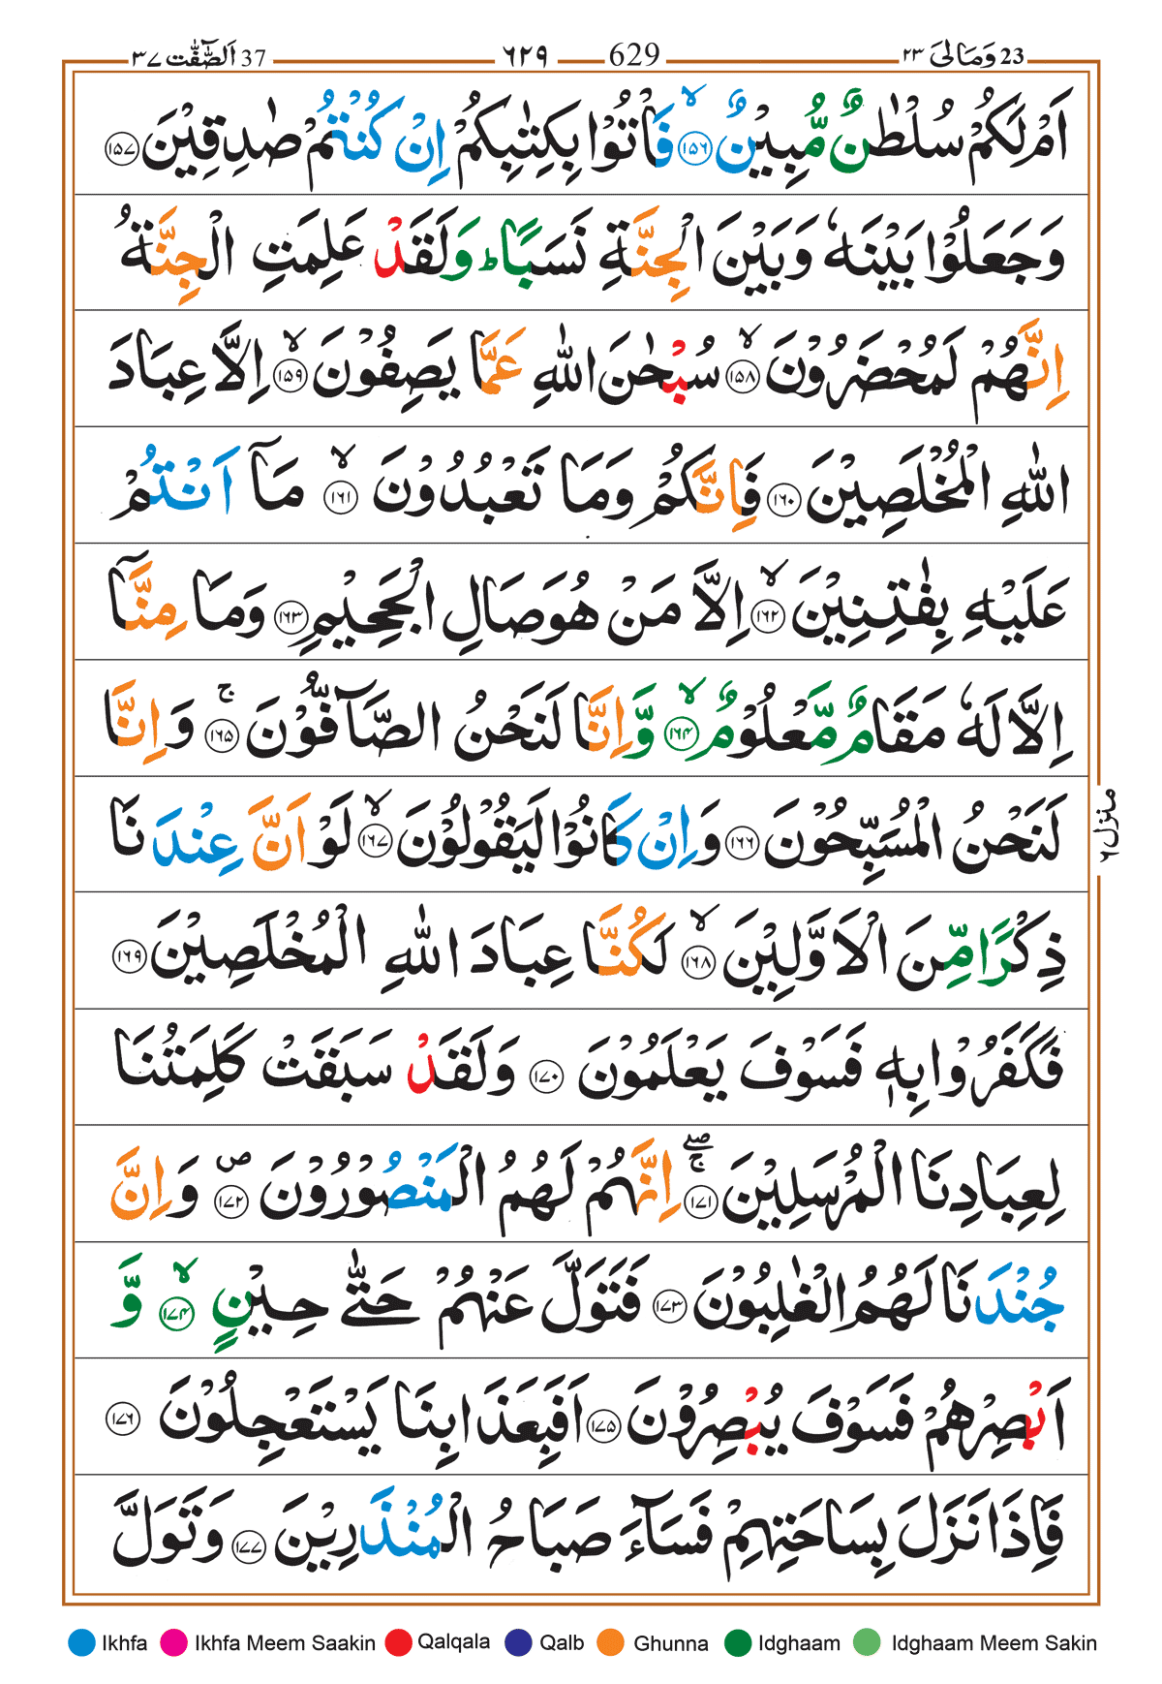 اَلصّٰٓفّٰت 37 ٣٧
629 ٦٢٩
وَمَالِیَ 23 ٢٣
اَمْ لَكُمْ سُلْطٰنٌ مُّبِیْنٌ ۙ﴿۱۵۶﴾ فَاْتُوْا بِكِتٰبِكُمْ اِنْ كُنْتُمْ صٰدِقِیْنَ ﴿۱۵۷﴾
وَجَعَلُوْا بَیْنَهٗ وَبَیْنَ الْجِنَّةِ نَسَبًا ؕ وَلَقَدْ عَلِمَتِ الْجِنَّةُ
اِنَّهُمْ لَمُحْضَرُوْنَ ۙ﴿۱۵۸﴾ سُبْحٰنَ اللّٰهِ عَمَّا یَصِفُوْنَ ۙ﴿۱۵۹﴾ اِلَّا عِبَادَ
اللّٰهِ الْمُخْلَصِیْنَ ﴿۱۶۰﴾ فَاِنَّكُمْ وَمَا تَعْبُدُوْنَ ۙ﴿۱۶۱﴾ مَاۤ اَنْتُمْ
عَلَیْهِ بِفٰتِنِیْنَ ۙ﴿۱۶۲﴾ اِلَّا مَنْ هُوَ صَالِ الْجَحِیْمِ ﴿۱۶۳﴾ وَمَا مِنَّاۤ
اِلَّا لَهٗ مَقَامٌ مَّعْلُوْمٌ ۙ﴿۱۶۴﴾ وَّاِنَّا لَنَحْنُ الصَّآفُّوْنَ ۚ﴿۱۶۵﴾ وَاِنَّا
لَنَحْنُ الْمُسَبِّحُوْنَ ﴿۱۶۶﴾ وَاِنْ كَانُوْا لَیَقُوْلُوْنَ ۙ﴿۱۶۷﴾ لَوْ اَنَّ عِنْدَنَا
ذِكْرًا مِّنَ الْاَوَّلِیْنَ ۙ﴿۱۶۸﴾ لَكُنَّا عِبَادَ اللّٰهِ الْمُخْلَصِیْنَ ﴿۱۶۹﴾
فَكَفَرُوْا بِهٖ فَسَوْفَ یَعْلَمُوْنَ ﴿۱۷۰﴾ وَلَقَدْ سَبَقَتْ كَلِمَتُنَا
لِعِبَادِنَا الْمُرْسَلِیْنَ ۚۖ﴿۱۷۱﴾ اِنَّهُمْ لَهُمُ الْمَنْصُوْرُوْنَ ۪﴿۱۷۲﴾ وَاِنَّ
جُنْدَنَا لَهُمُ الْغٰلِبُوْنَ ﴿۱۷۳﴾ فَتَوَلَّ عَنْهُمْ حَتّٰی حِیْنٍ ۙ﴿۱۷۴﴾ وَّ
اَبْصِرْهُمْ فَسَوْفَ یُبْصِرُوْنَ ﴿۱۷۵﴾ اَفَبِعَذَابِنَا یَسْتَعْجِلُوْنَ ﴿۱۷۶﴾
فَاِذَا نَزَلَ بِسَاحَتِهِمْ فَسَآءَ صَبَاحُ الْمُنْذَرِیْنَ ﴿۱۷۷﴾ وَتَوَلَّ
منزل ٦
Ikhfa Ikhfa Meem Saakin Qalqala Qalb Ghunna Idghaam Idghaam Meem Sakin